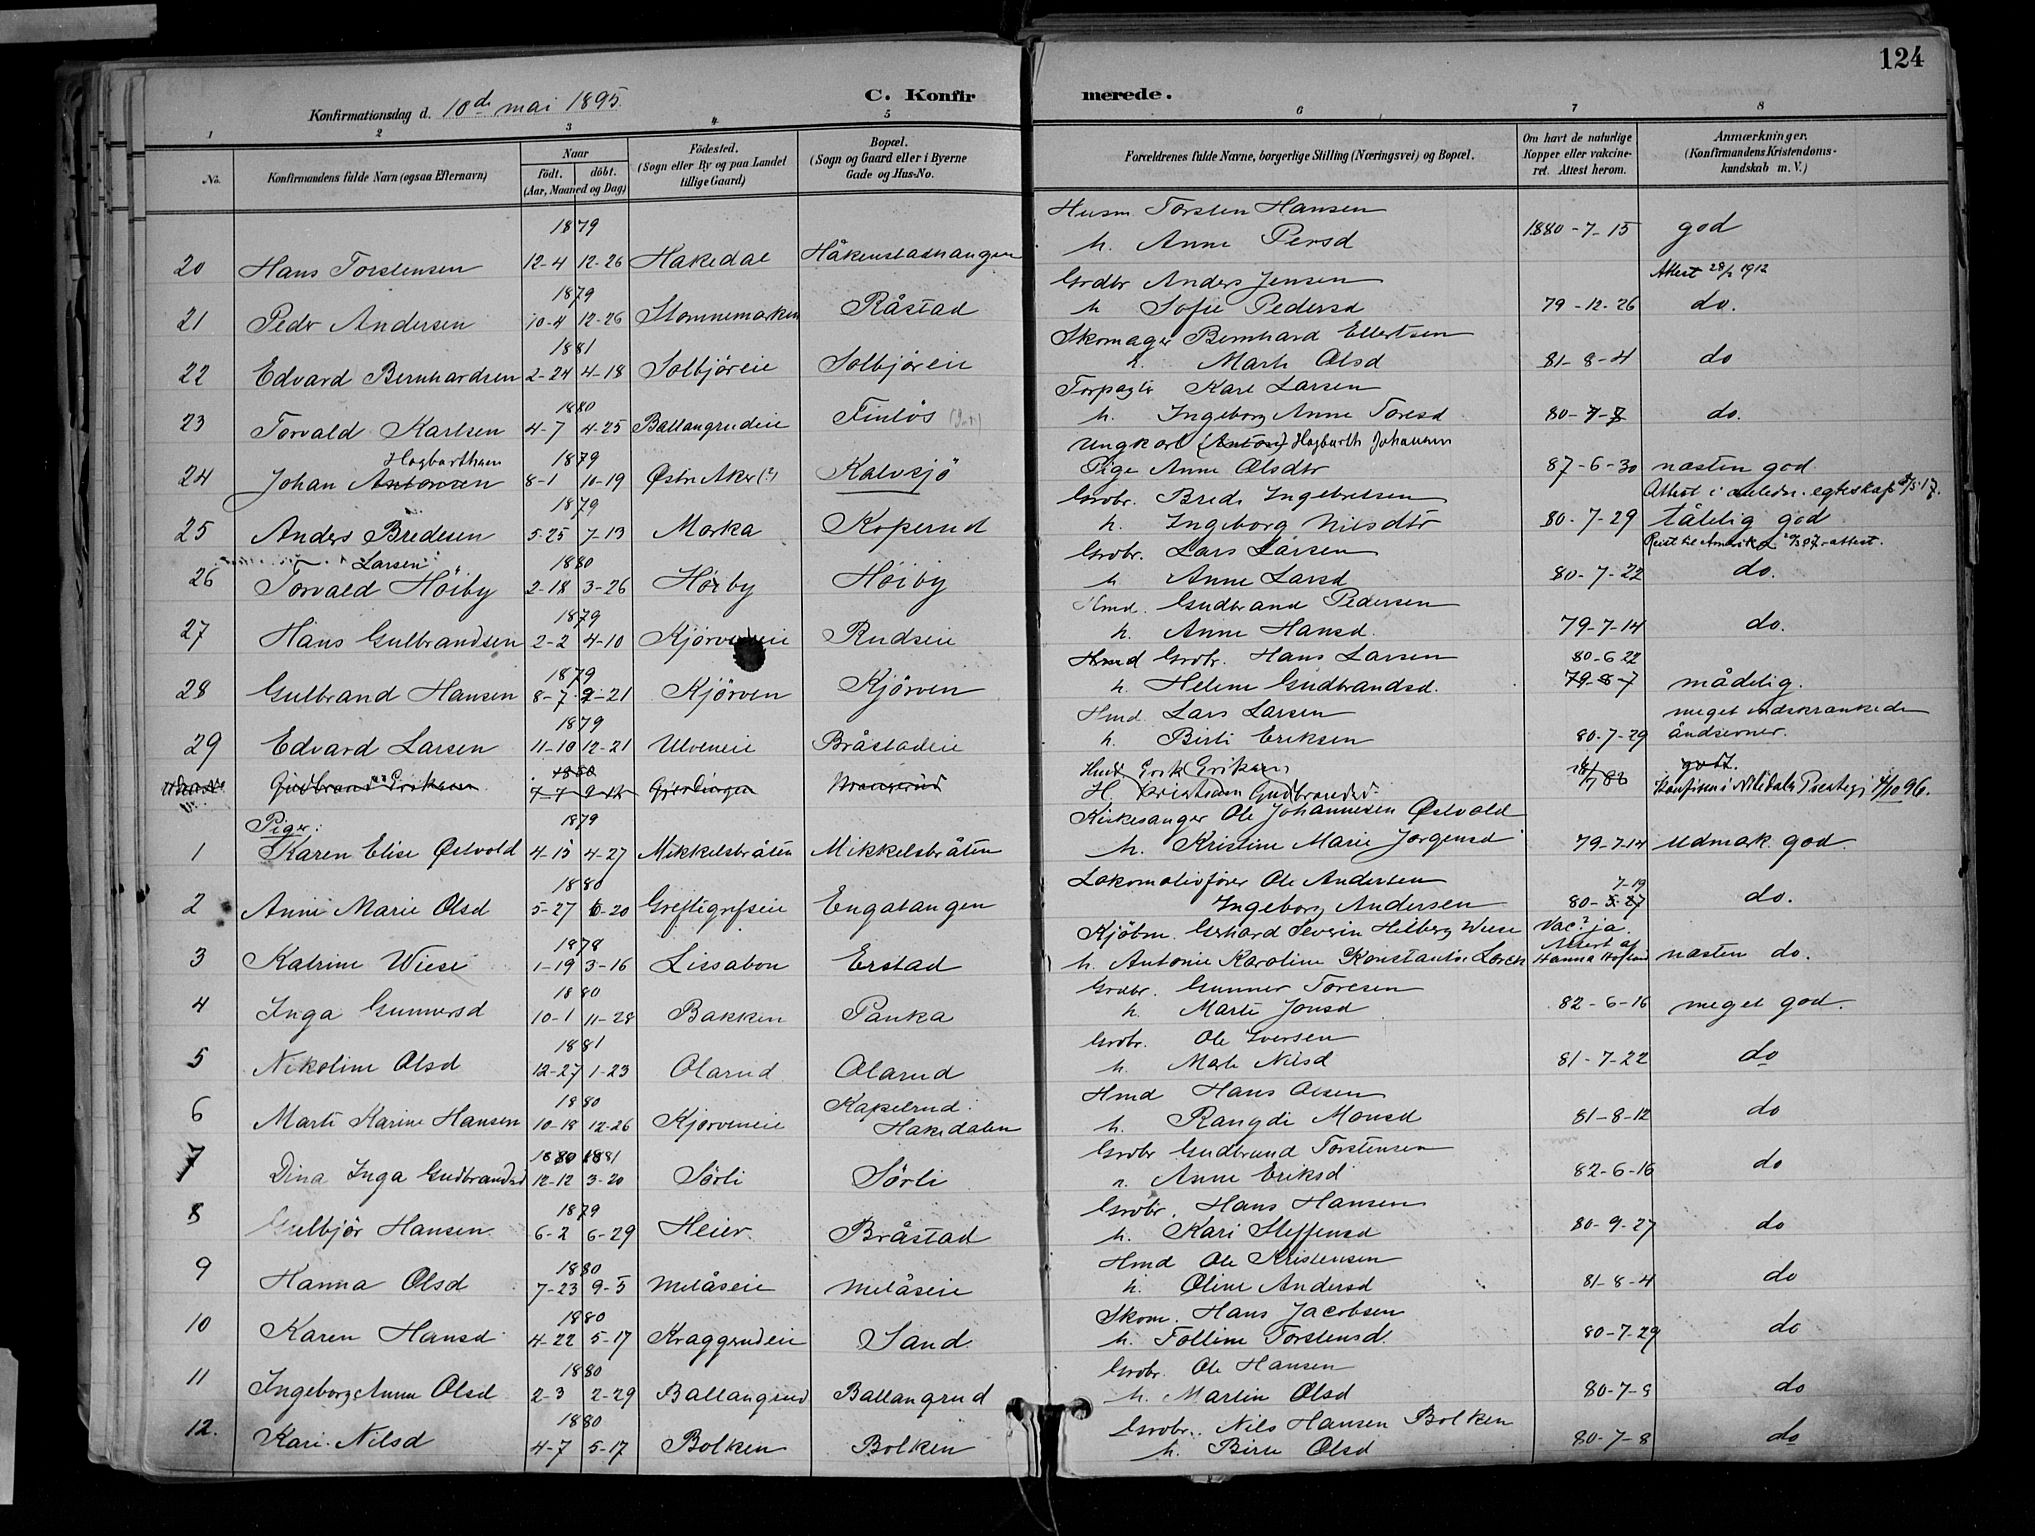 124
Konfirmationsdag d. 10de mai 1895.
C. Konfirmerede.
1 2 3 4 5 6 7 8
No. Konfirmandens fulde Navn (ogsaa Efternavn) Naar födt. döbt. (Aar, Maaned og Dag) Födested. (Sogn eller By og paa Landet tillige Gaard) Bopæl. (Sogn og Gaard eller i Byerne Gade og Hus-No. Forældrenes fulde Navne, borgerlige Stilling (Næringsvei) og Bopæl. Om havt de naturlige Kopper eller vakcineret. Attest herom. Anmærkninger. (Konfirmandens Kristendomskundskab m. V.)
1879 Husm Torsten Hansen
20 Hans Torstensen 12-4 12-26 Hakedal Håkenstadhaugen h. Anne Persd 1880-7-15 god
Attest 28/2 1912
1879 Grdbr Anders Jensen
21 Pedr Andersen 10-4 12-26 Stomnemarken Råstad h Sofie Pedersd 79-12-26 do.
1881 Skomager Bernhard Ellertsen
22 Edvard Bernhardsen 2-24 4-18 Solbjöreie Solbjöreie h. Marte Olsd 81-8-4 do
1880 Forpagtr Karl Larsen
23 Torvald Karlsen 4-7 4-25 Ballangrudeie Finlös h. Ingeborg Anne Toresd 80-7-7 do.
Hagbarthsen 1879 Ungkarl (Anton) Hagbarth Johansen
24 Johan Antonsen 8-1 10-19 Østre Aker (?) Kalvsjö Pige Anne Olsdtr 87-6-30 næsten god
Attest i anledn. egteskap 5/5 17.
1879 Grdbr. Brede Ingebretsen
25 Anders Bredesen 5-25 7-13 Morka Koperud h. Ingeborg Nilsdtr 80-7-29 tålelig god
Reist til Amerika attest.
Larsen 1880 Grdbr. Lars Larsen
26 Torvald Höiby 2-18 3-26 Höiby Höiby h Anne Larsd 80-7-22 do.
1879 Hmd. Gudbrand Pedersen
27 Hans Gulbrandsen 2-2 4-10 Kjörveneie Rudseie h. Anne Hansd. 79-7-14 do.
1879 Hmd Grdbr. Hans Larsen 80-6-22
28 Gulbrand Hansen 8-7 9-21 Kjörven Kjörven h. Helene Gudbrandsd. 79-8-7 mådelig.
1879 Hmd Lars Larsen meget indskrænkede
29 Edvard Larsen 11-10 12-21 Ulveneie Bråstadeie h. Birte Eriksen 80-7-29 åndsevner.
1880 Hmd Erik Eriksen godt.
Gudbrand Eriksen 7-7 H Kristiane Gudbrandsd. Konfirm i Nitedals Prestegj 4/10 96.
Piger: 1879 Kirkesanger Ole Johannesen Østvold
1 Karen Elise Østvold 4-15 4-27 Mikkelsbråten Mikkelsbråten h. Kristine Marie Jörgensd 79-7-14 Udmærk. god.
1880 Lokomotivförer Ole Andersen 7-19
2 Anne Marie Olsd 5-27 6-20 Greftegrefseie Engatangen Ingeborg Andersen 80-5-27 do.
1878 Kjöbm. Gerhard Severin Hilberg Wiese Vac? ja.
3 Katrine Wiese 1-19 3-16 Lissabon Erstad h. Antonie Karoline Konstantse Lorck Attest af Hanna næsten do.
1880 Grdbr. Gunner Toresen
4 Inga Gunnersd 10-1 11-28 Bakken Panka h. Marte Jonsd 82-6-16 meget god.
1881 Grdbr. Ole Iversen
5 Nikoline Olsd 12-27 1-23 Olarud Olarud h. Marte Nilsd 81-7-22 do
1880 Hmd Hans Olsen
6 Marte Karine Hansen 10-18 12-26 Kjörveneie Kapelrud. Hakedalen h. Rangdi Monsd 81-8-12 do
1880 1881 Grdbr Gudbrand Torstensen
7 Dina Inga Gudbrandsd 12-12 3-20 Sörli Sörli h. Anne Eriksd 82-6-16 do
1879 Grdbr. Hans Hansen
8 Gulbjör Hansen 6-2 6-29 Heier. Bråstad h. Kari Steffensd 80-9-27 do
1880 Hmd Ole Kristensen
9 Hanna Olsd 7-23 9-5 Melåseie Melåseie h. Oline Andersd 81-8-4 do
1880 Skom. Hans Jacobsen
10 Karen Hansd 4-22 5-17 Kraggerudeie Sand h. Tolline Torstensd. 80-7-29 do
1880 Grdbr. Ole Hansen
11 Ingeborg Anne Olsd 2-3 2-29 Ballangrud Ballangrud h. Martin Olsd 80-7-8 do
1880 Grdbr. Nils Hansen Bolken
12. Kari Nilsd 4-7 5-17 Bolken Bolken h. Birte Olsd 80-7-8 do